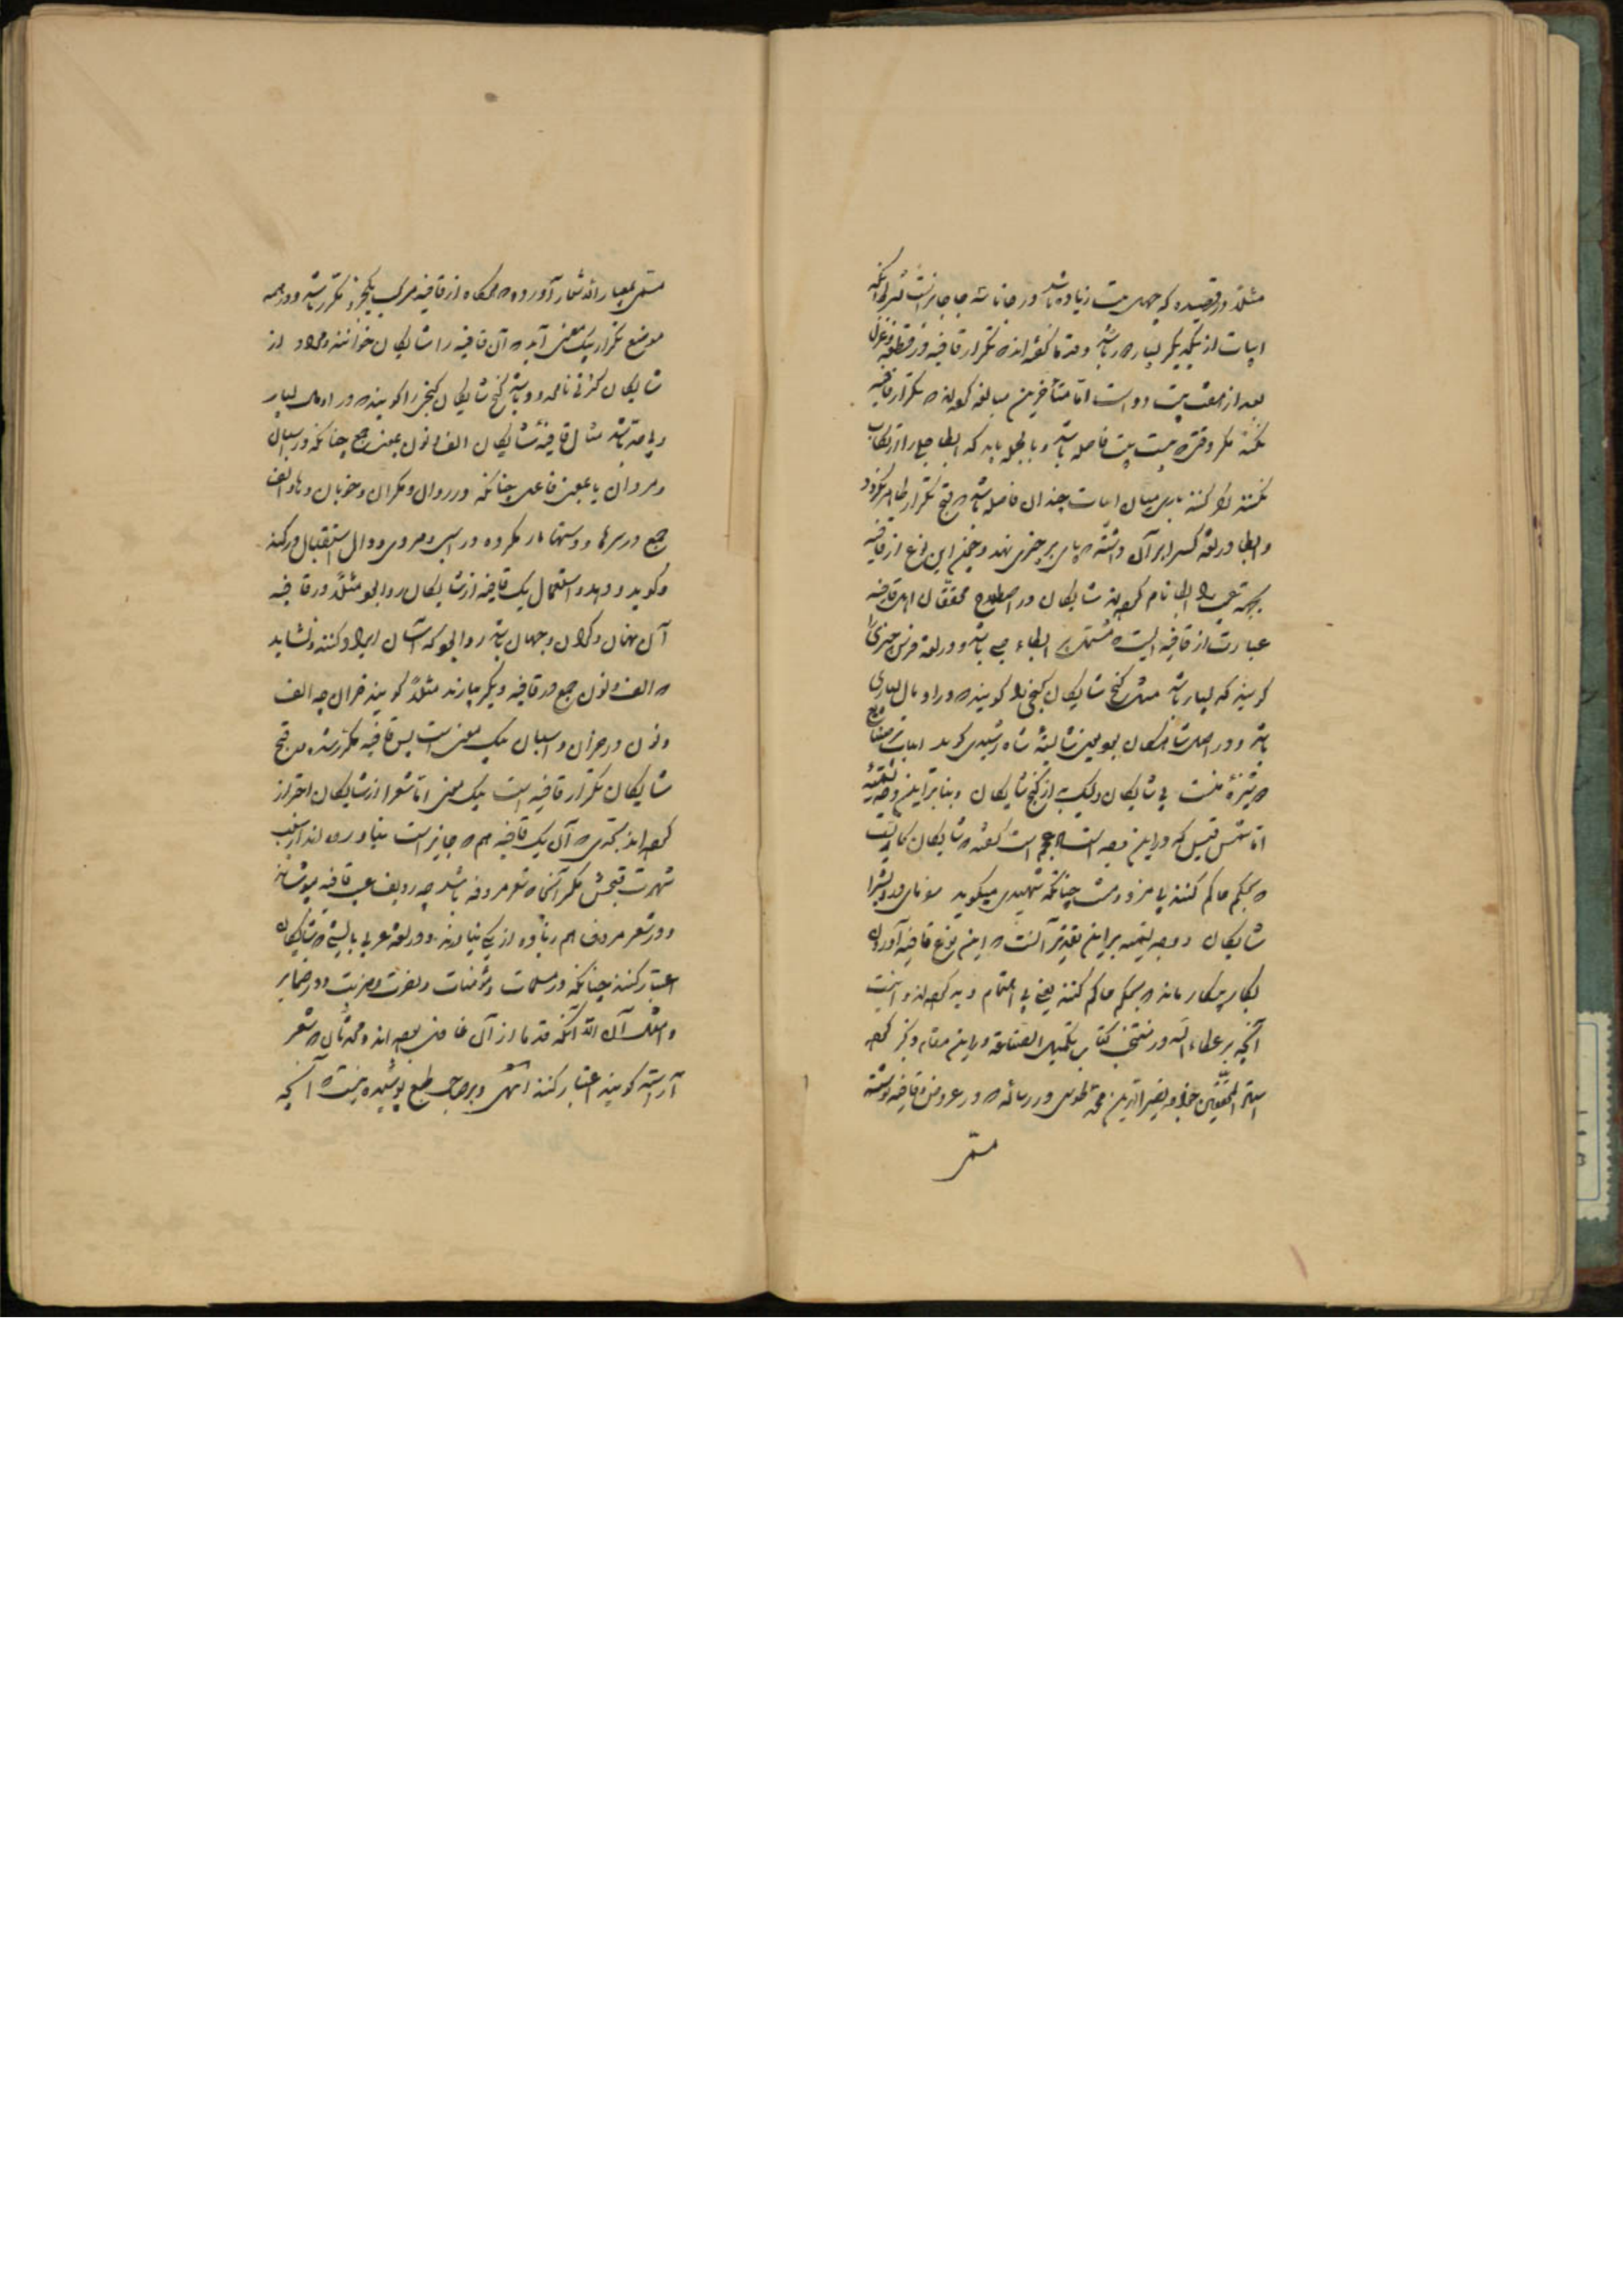 مثلا در قصیده که چهل بیت زیاده باشد در جائز است بشرط آنکه
ابیات از یکدیگر بسیار دور باشد و قدما گفته اند که تکرار قافیه در قطعه و غزل
بعد از هفت بیت رواست اما متأخرین مبالغه کرده اند که تکرار قافیه
نکنند مگر وقتی که بیست بیت فاصله باشد و بالجمله باید که ایطا جلی را ارتکاب
نکنند و اگر کنند باری میان ابیات چندان فاصله باشد که قبح تکرار ظاهر نگردد
و ایطا در لغة کسی را بر آن داشتن که پای بر چیزی نهد و چنین این نوع از قافیه
بجهة ایطا نام کرده اند شایکان در اصطلاح محققان اهل قافیه
عبارت از قافیه ایست که مشتمل بر ایطاء جلی باشد و در لغة فرس چیزی را
کویند که بسیار باشد مثل کنج شایکان کنجی را کویند که در او مال بسیاری
باشد و در اصل شاهکان بوده یعنی شایسته شاه رشیدی کوید ابیات
شایکان ولیک به از کنج شایکان و بنابراین وجه تسمیه
اما شمس قیس که در این عجم است گفته که شایکان کاریست
که بحکم حاکم کنند بی مزد و منت چنانکه شهیدی میکوید
شایکان و وجه تسمیه بر این تقدیر آنست که این نوع قافیه آوردن
بکار بیکار ماند که بحکم حاکم کنند یعنی بی اهتمام و اینست
آنچه میر عطاء الله در منتخب کتاب تکمیل الصناعة در این مقام ذکر کرده
استاد المحققین خواجه نصیر الدین محمد طوسی در رساله که در عروض و قافیه نوشته
مسمی
مسمی بمعیار الاشعار آورده که هرگاه از قافیه مرکب یکجزو مکرر باشد و در همه
موضع تکرار بیک معنی آید آن قافیه را شایکان خوانند و مراد از
شایکان کثرتی نامحدود باشد کنج شایکان کنجی را کویند که در او مال بسیار
و بی حد باشد مثال قافیه شایکان الف و نون بمعنی جمع چنانکه در اسبان
و مردان یا بمعنی فاعل چنانکه در روان و مکران و خوبان و ها و الف
جمع در سرها و دستها و در اسبی و مردی و دال استقبال در کند
و کوید و دهد و استعمال یک قافیه از شایکان روا بود مثلا در قافیه
آن نهان و کران و جهان باشد روا بود که اسبان ایراد کنند و نشاید
که الف و نون جمع در قافیه دیکر بیارند مثلا کویند خران چه الف
و نون در خران و اسبان بیک معنی است پس قافیه مکرر شده و قبح
شایکان تکرار قافیه است بیک معنی اما شعرا از شایکان احتراز
کرده اند بحدی که آن یک قافیه هم که جایز است نیاورده اند از سبب
شهرت قبحش مکر آنجا که شعر مردف باشد چه ردیف عیب قافیه بپوشاند
و در شعر مردف هم زیاده از یکی نیاورند و در لغة عربی بایستی که شایکان
اعتبار کنند چنانکه در مسلمات و مؤمنات و نصرت و ضربت و در ضمایر
و امثال آن الا آنکه قدما از آن غافل بوده اند و محدثان که شعر
آراسته کویند اعتبار کنند انتهی و بر صاحب طبع پوشیده نیست که آنچه